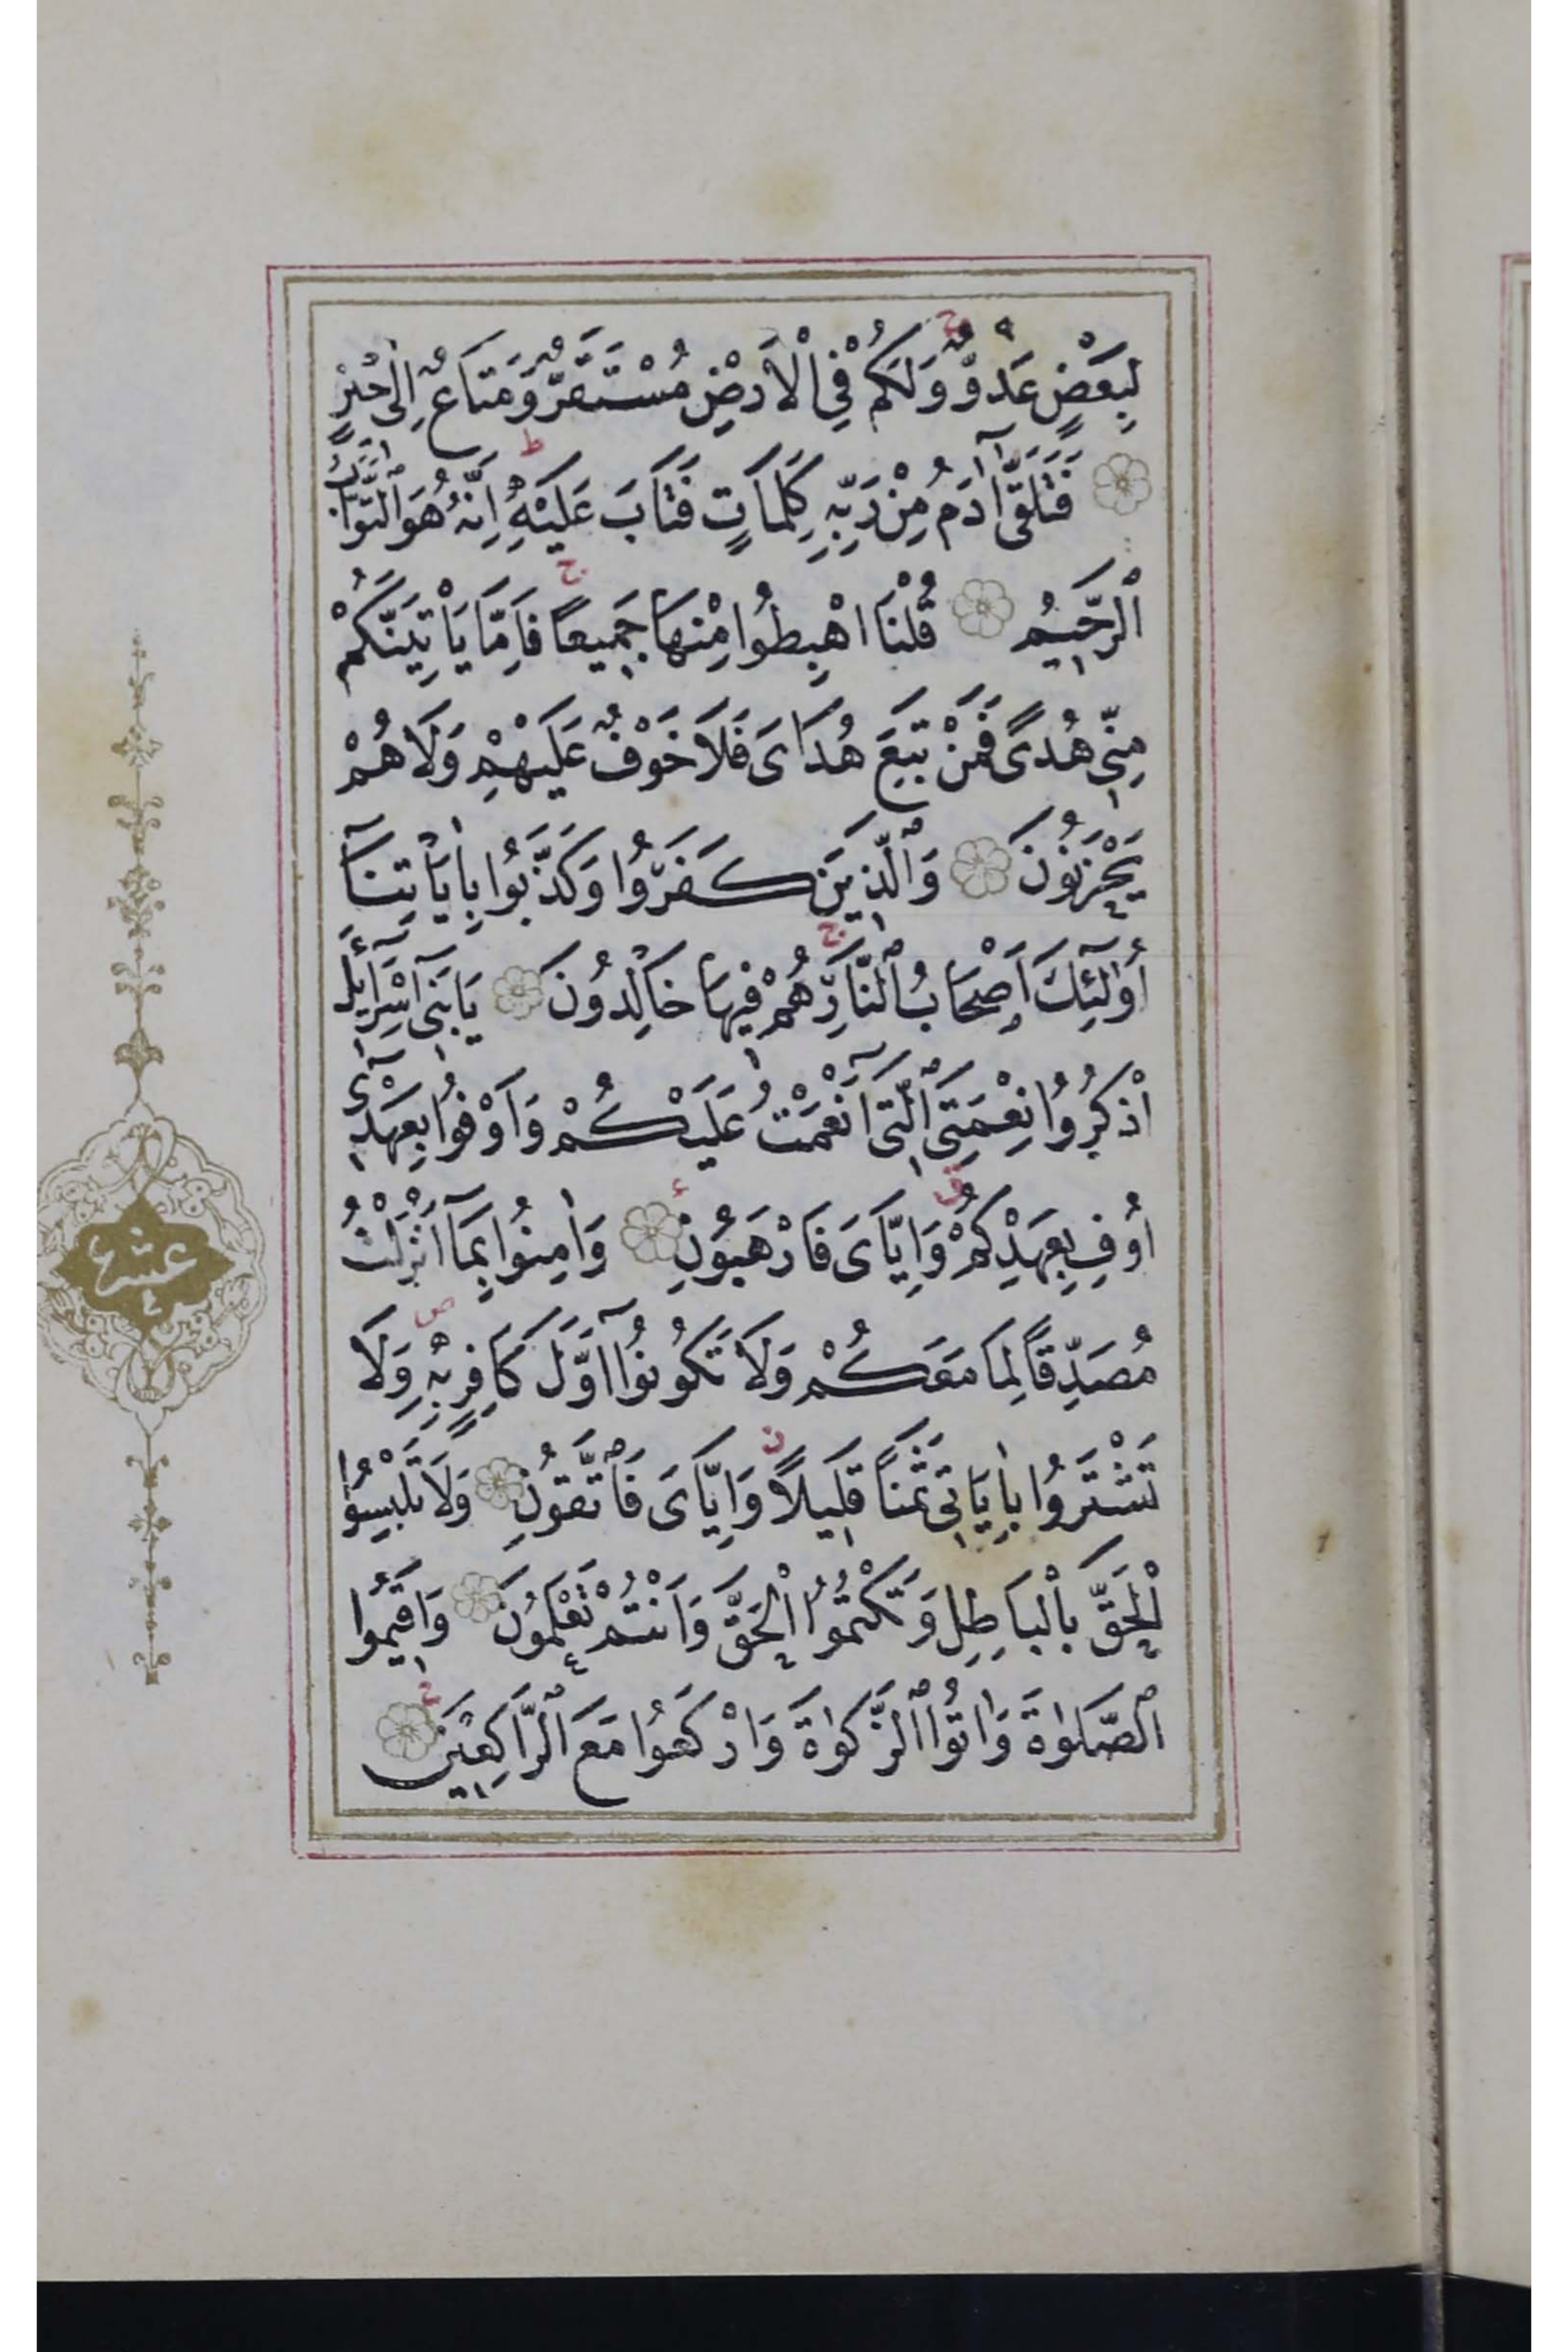 لِبَعْضٍ عَدُوٌّ وَلَكُمْ فِي الْاَرْضِ مُسْتَقَرٌّ وَمَتَاعٌ اِلٰى حٖينٍ
فَتَلَقّٰٓى اٰدَمُ مِنْ رَبِّهٖ كَلِمَاتٍ فَتَابَ عَلَيْهِ اِنَّهُ هُوَ التَّوَّابُ
الرَّحٖيمُ قُلْنَا اهْبِطُوا مِنْهَا جَمٖيعًا فَاِمَّا يَاْتِيَنَّكُمْ
مِنّٖى هُدًى فَمَنْ تَبِعَ هُدَاىَ فَلَا خَوْفٌ عَلَيْهِمْ وَلَا هُمْ
يَحْزَنُونَ وَالَّذٖينَ كَفَرُوا وَكَذَّبُوا بِاٰيَاتِنَٓا
اُو۬لٰٓئِكَ اَصْحَابُ النَّارِ هُمْ فٖيهَا خَالِدُونَ يَا بَنٖٓى اِسْرَٓائٖلَ
اذْكُرُوا نِعْمَتِىَ الَّتٖٓى اَنْعَمْتُ عَلَيْكُمْ وَاَوْفُوا بِعَهْدٖٓى
اُو۫فِ بِعَهْدِكُمْ وَاِيَّاىَ فَارْهَبُونِ وَاٰمِنُوا بِمَٓا اَنْزَلْتُ
مُصَدِّقًا لِمَا مَعَكُمْ وَلَا تَكُونُٓوا اَوَّلَ كَافِرٍ بِهٖ وَلَا
تَشْتَرُوا بِاٰيَاتٖى ثَمَنًا قَلٖيلًا وَاِيَّاىَ فَاتَّقُونِ وَلَا تَلْبِسُوا
الْحَقَّ بِالْبَاطِلِ وَتَكْتُمُوا الْحَقَّ وَاَنْتُمْ تَعْلَمُونَ وَاَقٖيمُوا
الصَّلٰوةَ وَاٰتُوا الزَّكٰوةَ وَارْكَعُوا مَعَ الرَّاكِعٖينَ
عشر